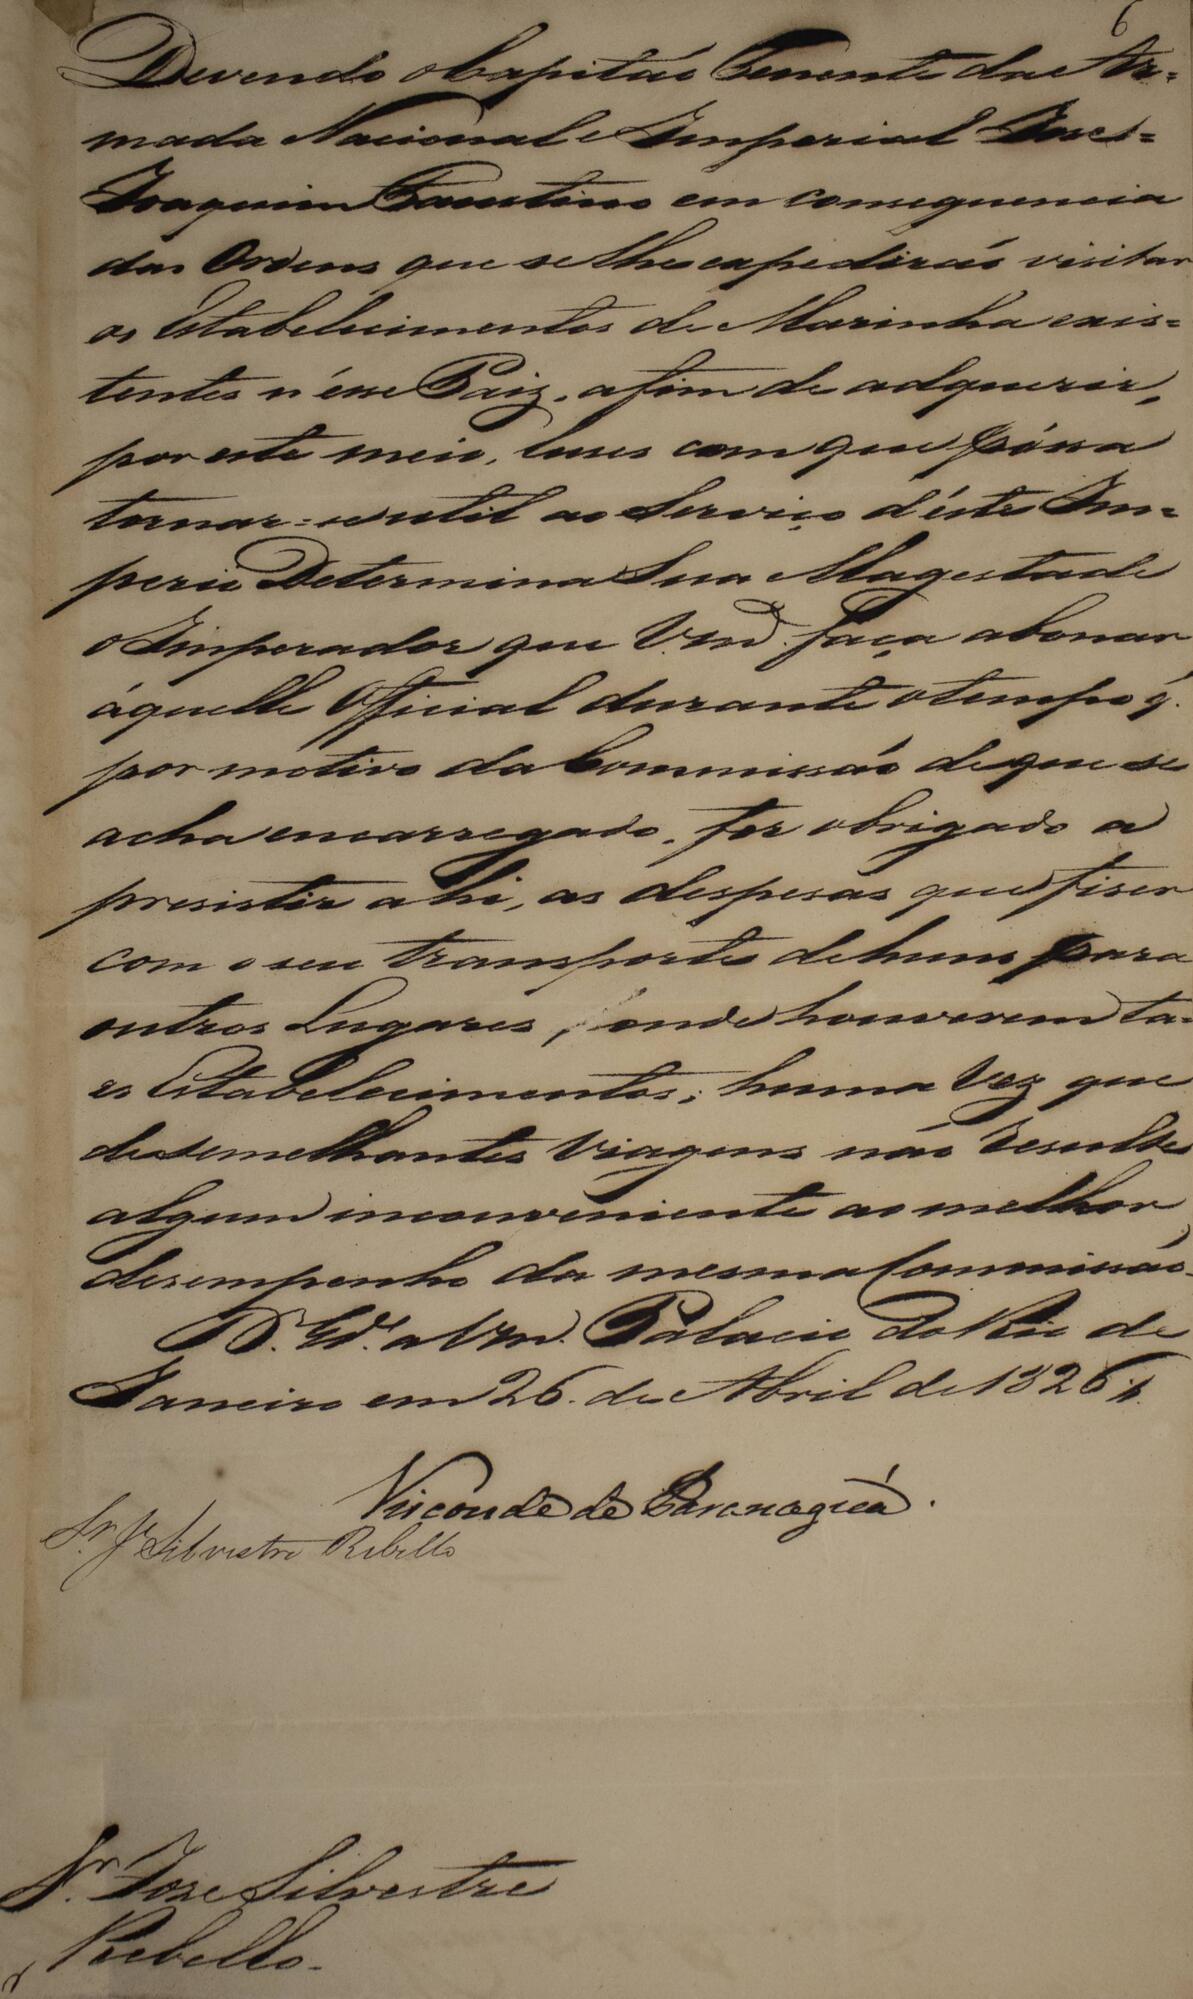 6
Devendo o Capitão Tenente da Ar=
mada Nacional e Imperial José=
Joaquim Faustino em consequencia
das Ordens que se lhe expedirão visitar
os Estabelecimentos de Marinha exis=
tentes n'ésse Paiz, afim de adquerir,
por este meio, luses com que póssa
tornar=se util ao Serviço d'éste Im=
perio Determina Sua Magestade
o Imperador que Vmᶜᵉ. faça abonar
áquelle Official durante o tempo q̃.
por motivo da Commissão de que se
acha encarregado, for obrigado a
presistir ahi, as despesas que fiser
com o seu transporte de huns para
outros Lugares, onde houverem ta-
es Estabelecimentos; huma vez que
de semelhantes viagens não resulte
algum inconveniente ao melhor
desempenho da mesma Commissão.
Dˢ. Gᵈᵉ. a Vm. Palacio do Rio de
Janeiro em 26. de Abril de 1826
Visconde de Paranaguá.
Sʳ. Jᵉ Silvestre Rebello
Sʳ. Joze Silvestre
Rebello.